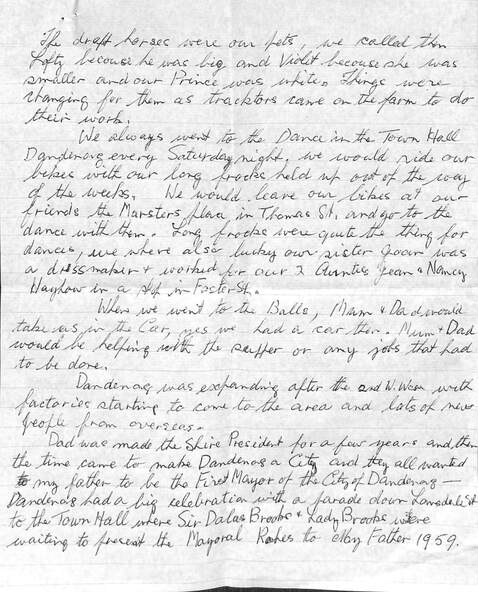 The draft horses were our pets, we called then
Lofty because he was big and Violet because she was
smaller and our Prince was white. Things were
changing for them as tracktors came on the farm to do
their work.
We always went to the Dance in the Town Hall
Dandenong every Saturday night. we would ride our
bikes with our long frocks held up out of the way
of the weeks. We would leave our bikes at our
friends the Marsters place in Thomas St. and go to the
dance with them. Long frocks were quite the thing for
dances, we where also lucky our sister Joan was
a dressmaker + worked for our 2 Aunties Jean & Nancy
Hayhow in a shop in Foster St.
When we went to the Balls, Mum & Dad would
take us in the Car, yes we had a car then. Mum & Dad
would be helping with the supper or any jobs that had
to be done.
Dandenong was expanding after the 2nd W. War with
factories starting to come to the area and lots of new
people from overseas.
Dad was made the Shire President for a few years and then
the time came to make Dandenong a City and they all wanted
to my father to be the First Mayor of the City of Dandenong —
Dandenong had a big celebration with a parade down Lonsdale St
to the Town Hall where Sir Dalas Brooks & Lady Brooks were
waiting to present the Mayoral Robes to My Father 1959.